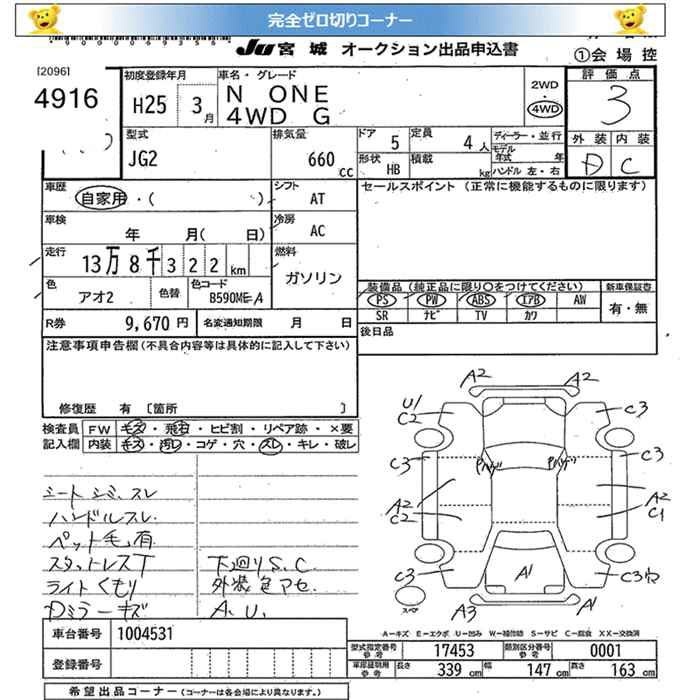 完全ゼロ切りコーナー
JU 宮城 オークション出品申込書
①会場控
[2096]
4916
初度登録年月
H25 3月
車名・グレード
N ONE
4WD G
2WD
・
4WD
評価点
3
外装 内装
D C
型式
JG2
排気量
660 cc
ドア 5
定員 4人
形状 HB
積載 kg
ディーラー・並行
モデル
年式 年
ハンドル 左・右
車歴
自家用・(
シフト AT
セールスポイント (正常に機能するものに限ります)
車検 年 月( 日)
冷房 AC
走行 13万8千322km
燃料 ガソリン
色 アオ2
色替
色コード B590ME-A
装備品 (純正品に限り○をつけてください)
新車保証書
PS PW ABS エアB AW
有・無
SR ナビ TV カワ
R券 9,670円
名変通知期限 月 日
後日品
注意事項申告欄(不具合内容等は具体的に記入して下さい)
修復歴 有 〔箇所 〕
検査員 FW キズ・飛石・ヒビ割・リペア跡・×要
記入欄 内装 キズ・汚レ・コゲ・穴・スレ・キレ・破レ
シートシミ、スレ
ハンドルスレ
ペット毛有
スタットレスT
下回りS.C
ライトくもり
外装色アセ
Dミラーキズ
A.U.
A2 A2
U1
C2
C3
C3
C3
A2
C2
A2
C1
C3
A1
C3ワ
スペア
A3
A1
A-キズ E-エクボ U-凹み W-補修跡 S-サビ C-腐食 XX-交換済
車台番号 1004531
登録番号
型式指定番号
参考
17453
類別区分番号
参考
0001
車庫証明用
参考
長さ 339 cm
幅 147 cm
高さ 163 cm
希望出品コーナー (コーナーは各会場により異なります。)